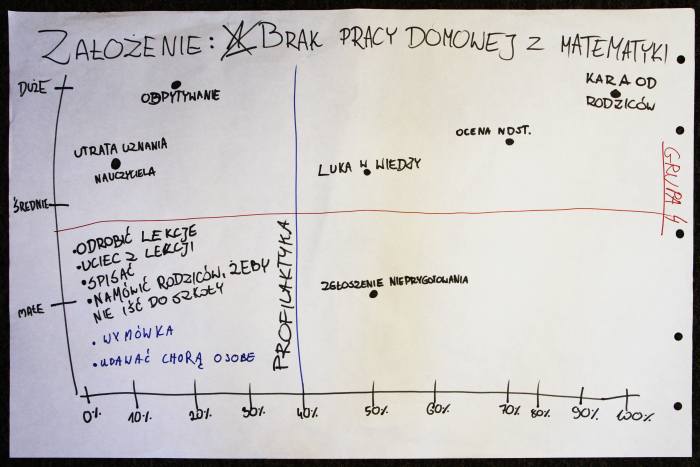 ZAŁOŻENIE: BRAK PRACY DOMOWEJ Z MATEMATYKI
DUŻE
ODPYTYWANIE
KARA OD
RODZICÓW
OCENA NDST.
UTRATA UZNANIA
NAUCZYCIELA
LUKA W WIEDZY
GRUPA 4
ŚREDNIE
• ODROBIĆ LEKCJE
• UCIEC Z LEKCJI
• SPISAĆ
• NAMÓWIĆ RODZICÓW, ŻEBY
NIE IŚĆ DO SZKOŁY
ZGŁOSZENIE NIEPRZYGOTOWANIA
MAŁE
PROFILAKTYKA
• WYMÓWKA
• UDAWAĆ CHORĄ OSOBE
0% 10% 20% 30% 40% 50% 60% 70% 80% 90% 100%